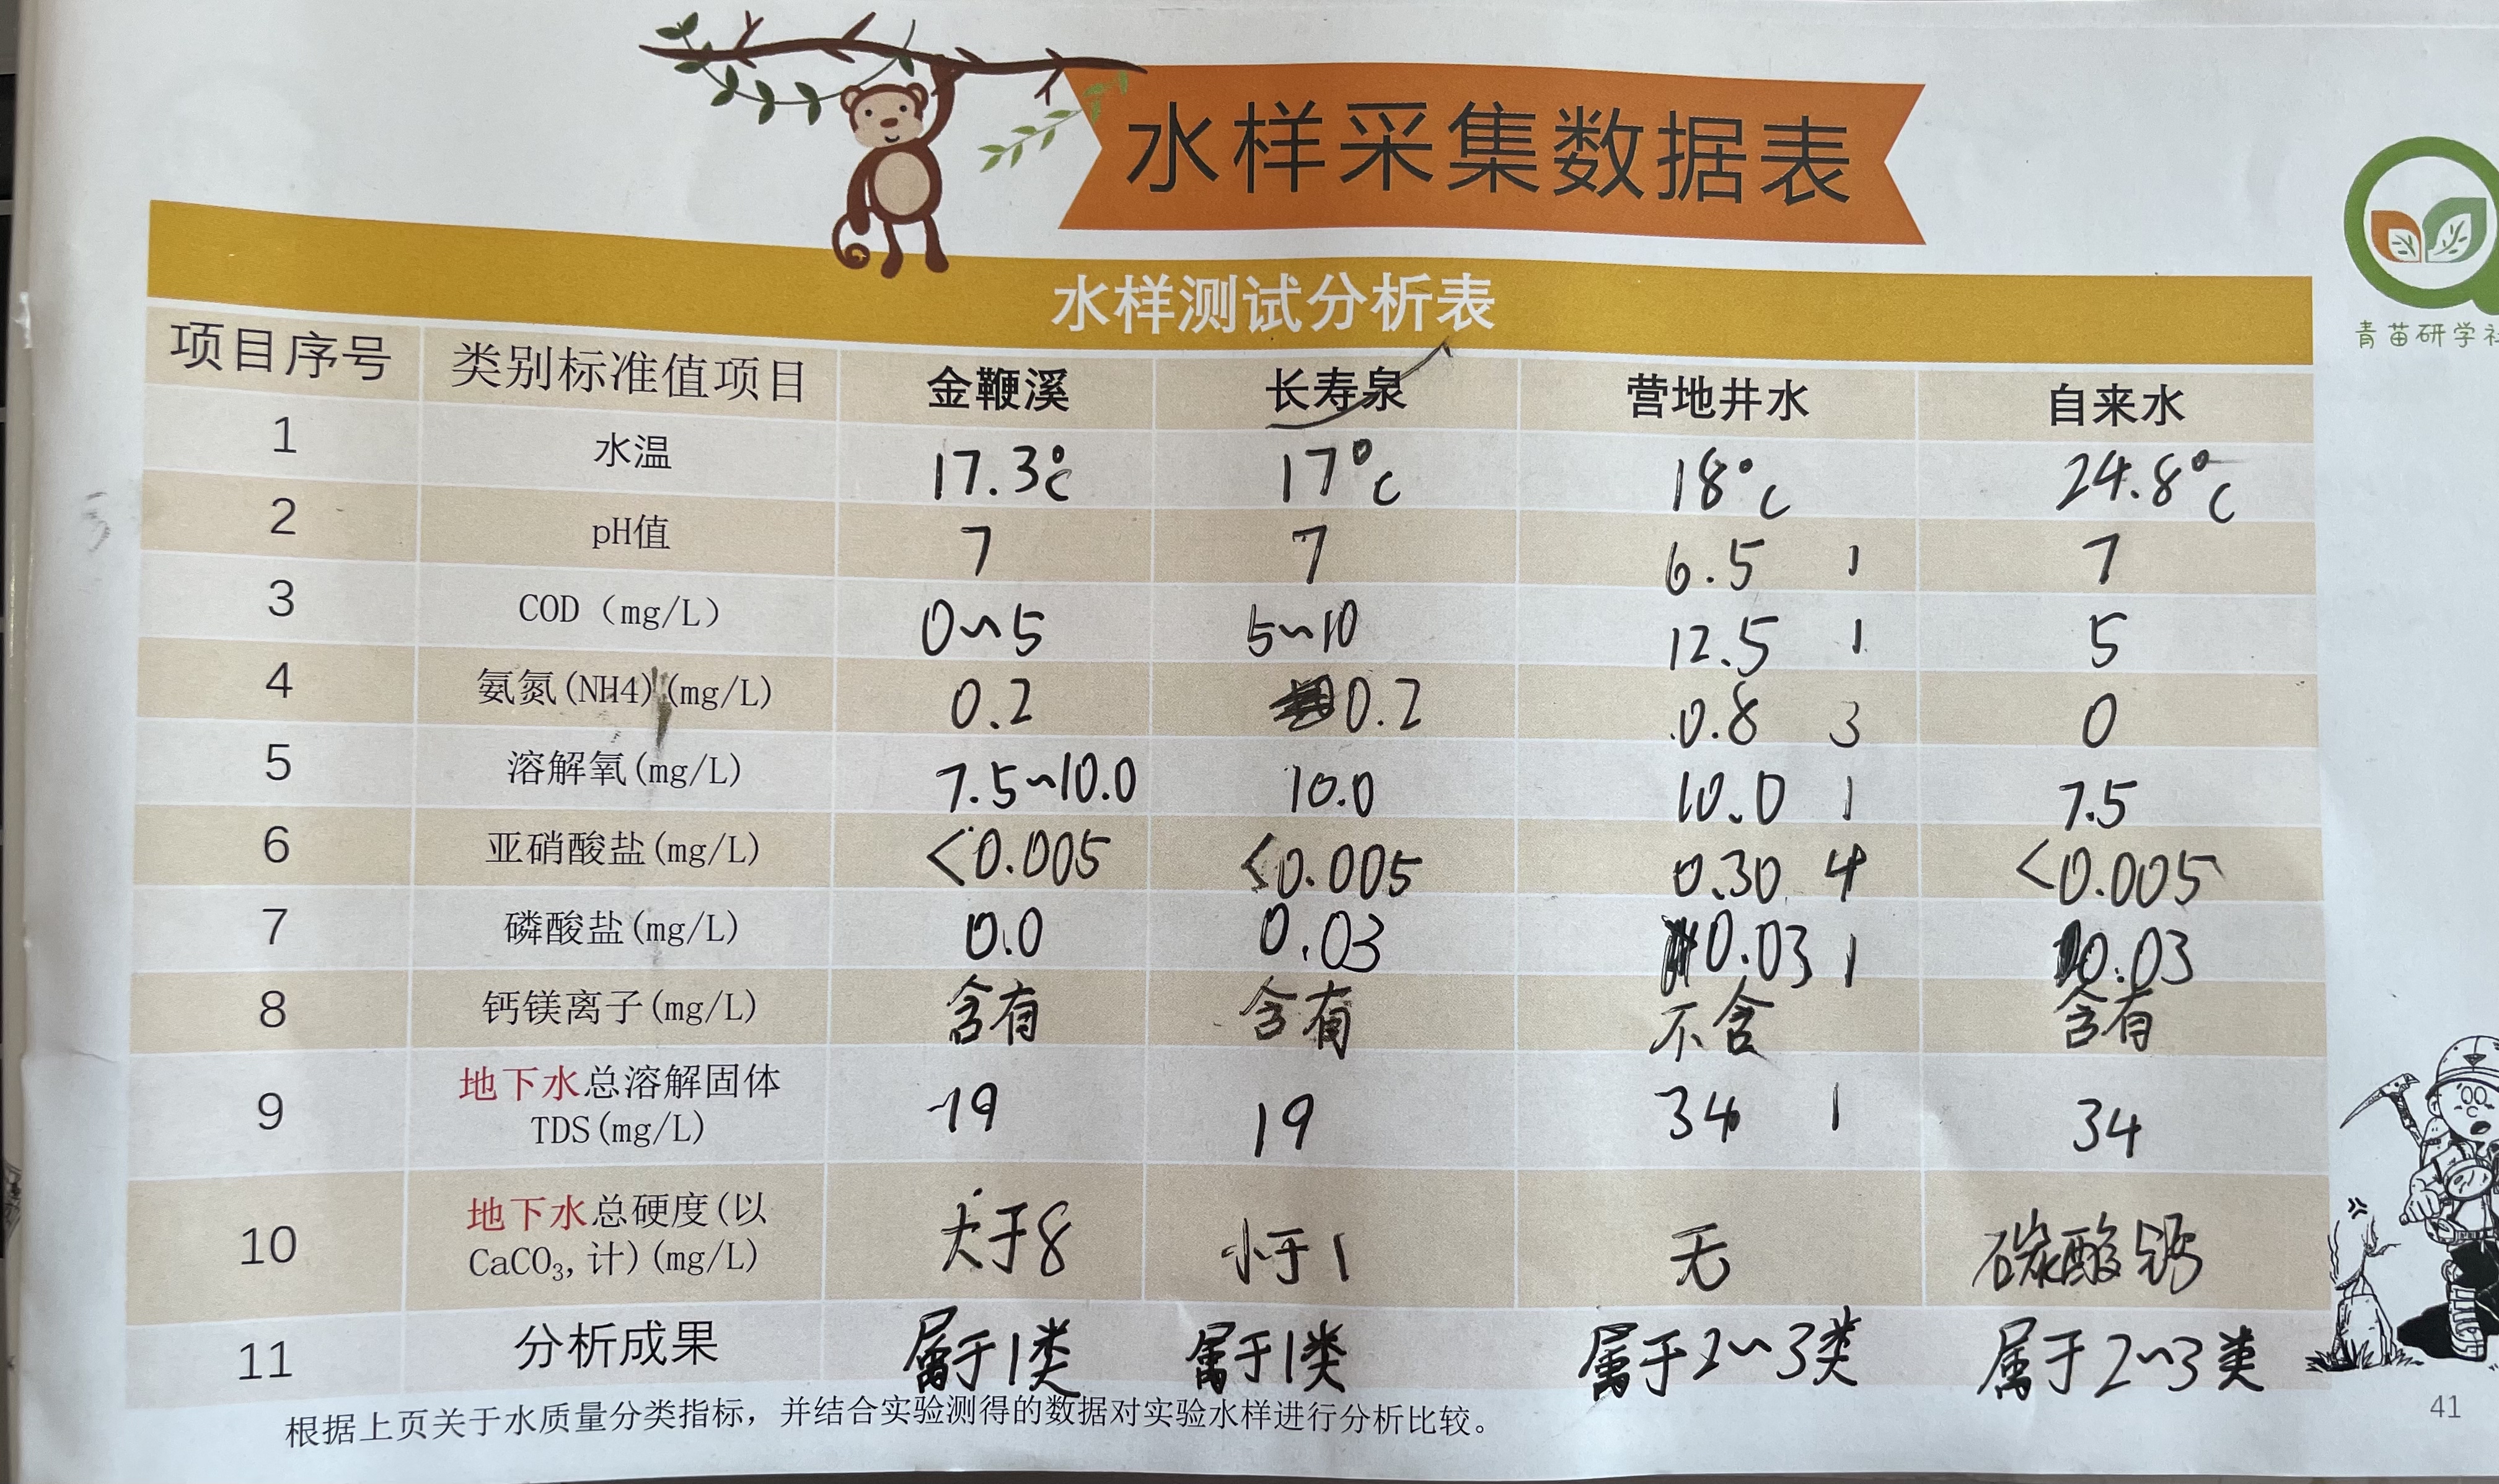 水样采集数据表
青苗研学社
水样测试分析表
项目序号 类别标准值项目 金鞭溪 长寿泉 营地井水 自来水
1 水温 17.3℃ 17℃ 18℃ 24.8℃
2 pH值 7 7 6.5 1 7
3 COD（mg/L） 0~5 5~10 12.5 1 5
4 氨氮(NH4)(mg/L) 0.2 0.2 0.8 3 0
5 溶解氧(mg/L) 7.5~10.0 10.0 10.0 1 7.5
6 亚硝酸盐(mg/L) <0.005 <0.005 0.30 4 <0.005
7 磷酸盐(mg/L) 0.0 0.03 0.03 1 0.03
8 钙镁离子(mg/L) 含有 含有 不含 含有
9 地下水总溶解固体
TDS(mg/L) 19 19 34 1 34
10 地下水总硬度(以
CaCO₃,计)(mg/L) 大于8 小于1 无 碳酸钙
11 分析成果 属于1类 属于1类 属于2~3类 属于2~3类
根据上页关于水质量分类指标，并结合实验测得的数据对实验水样进行分析比较。
41